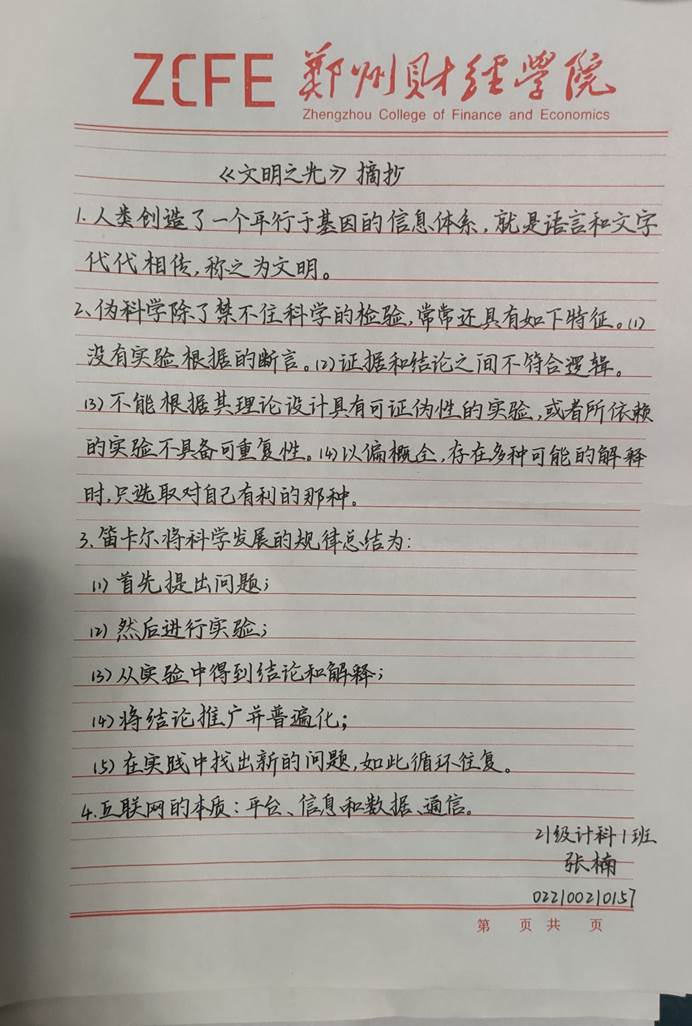 ZCFE 郑州财经学院
Zhengzhou College of Finance and Economics
《文明之光》摘抄
1.人类创造了一个平行于基因的信息体系,就是语言和文字
代代相传,称之为文明。
2、伪科学除了禁不住科学的检验,常常还具有如下特征。(1)
没有实验根据的断言。(2)证据和结论之间不符合逻辑。
(3)不能根据其理论设计具有可证伪性的实验,或者所依赖
的实验不具备可重复性。(4)以偏概全,存在多种可能的解释
时,只选取对自己有利的那种。
3.笛卡尔将科学发展的规律总结为:
(1)首先提出问题;
(2)然后进行实验;
(3)从实验中得到结论和解释;
(4)将结论推广并普遍化;
(5)在实践中找出新的问题,如此循环往复。
4.互联网的本质:平台、信息和数据、通信。
21级计科1班
张楠
022100210157
第 页 共 页